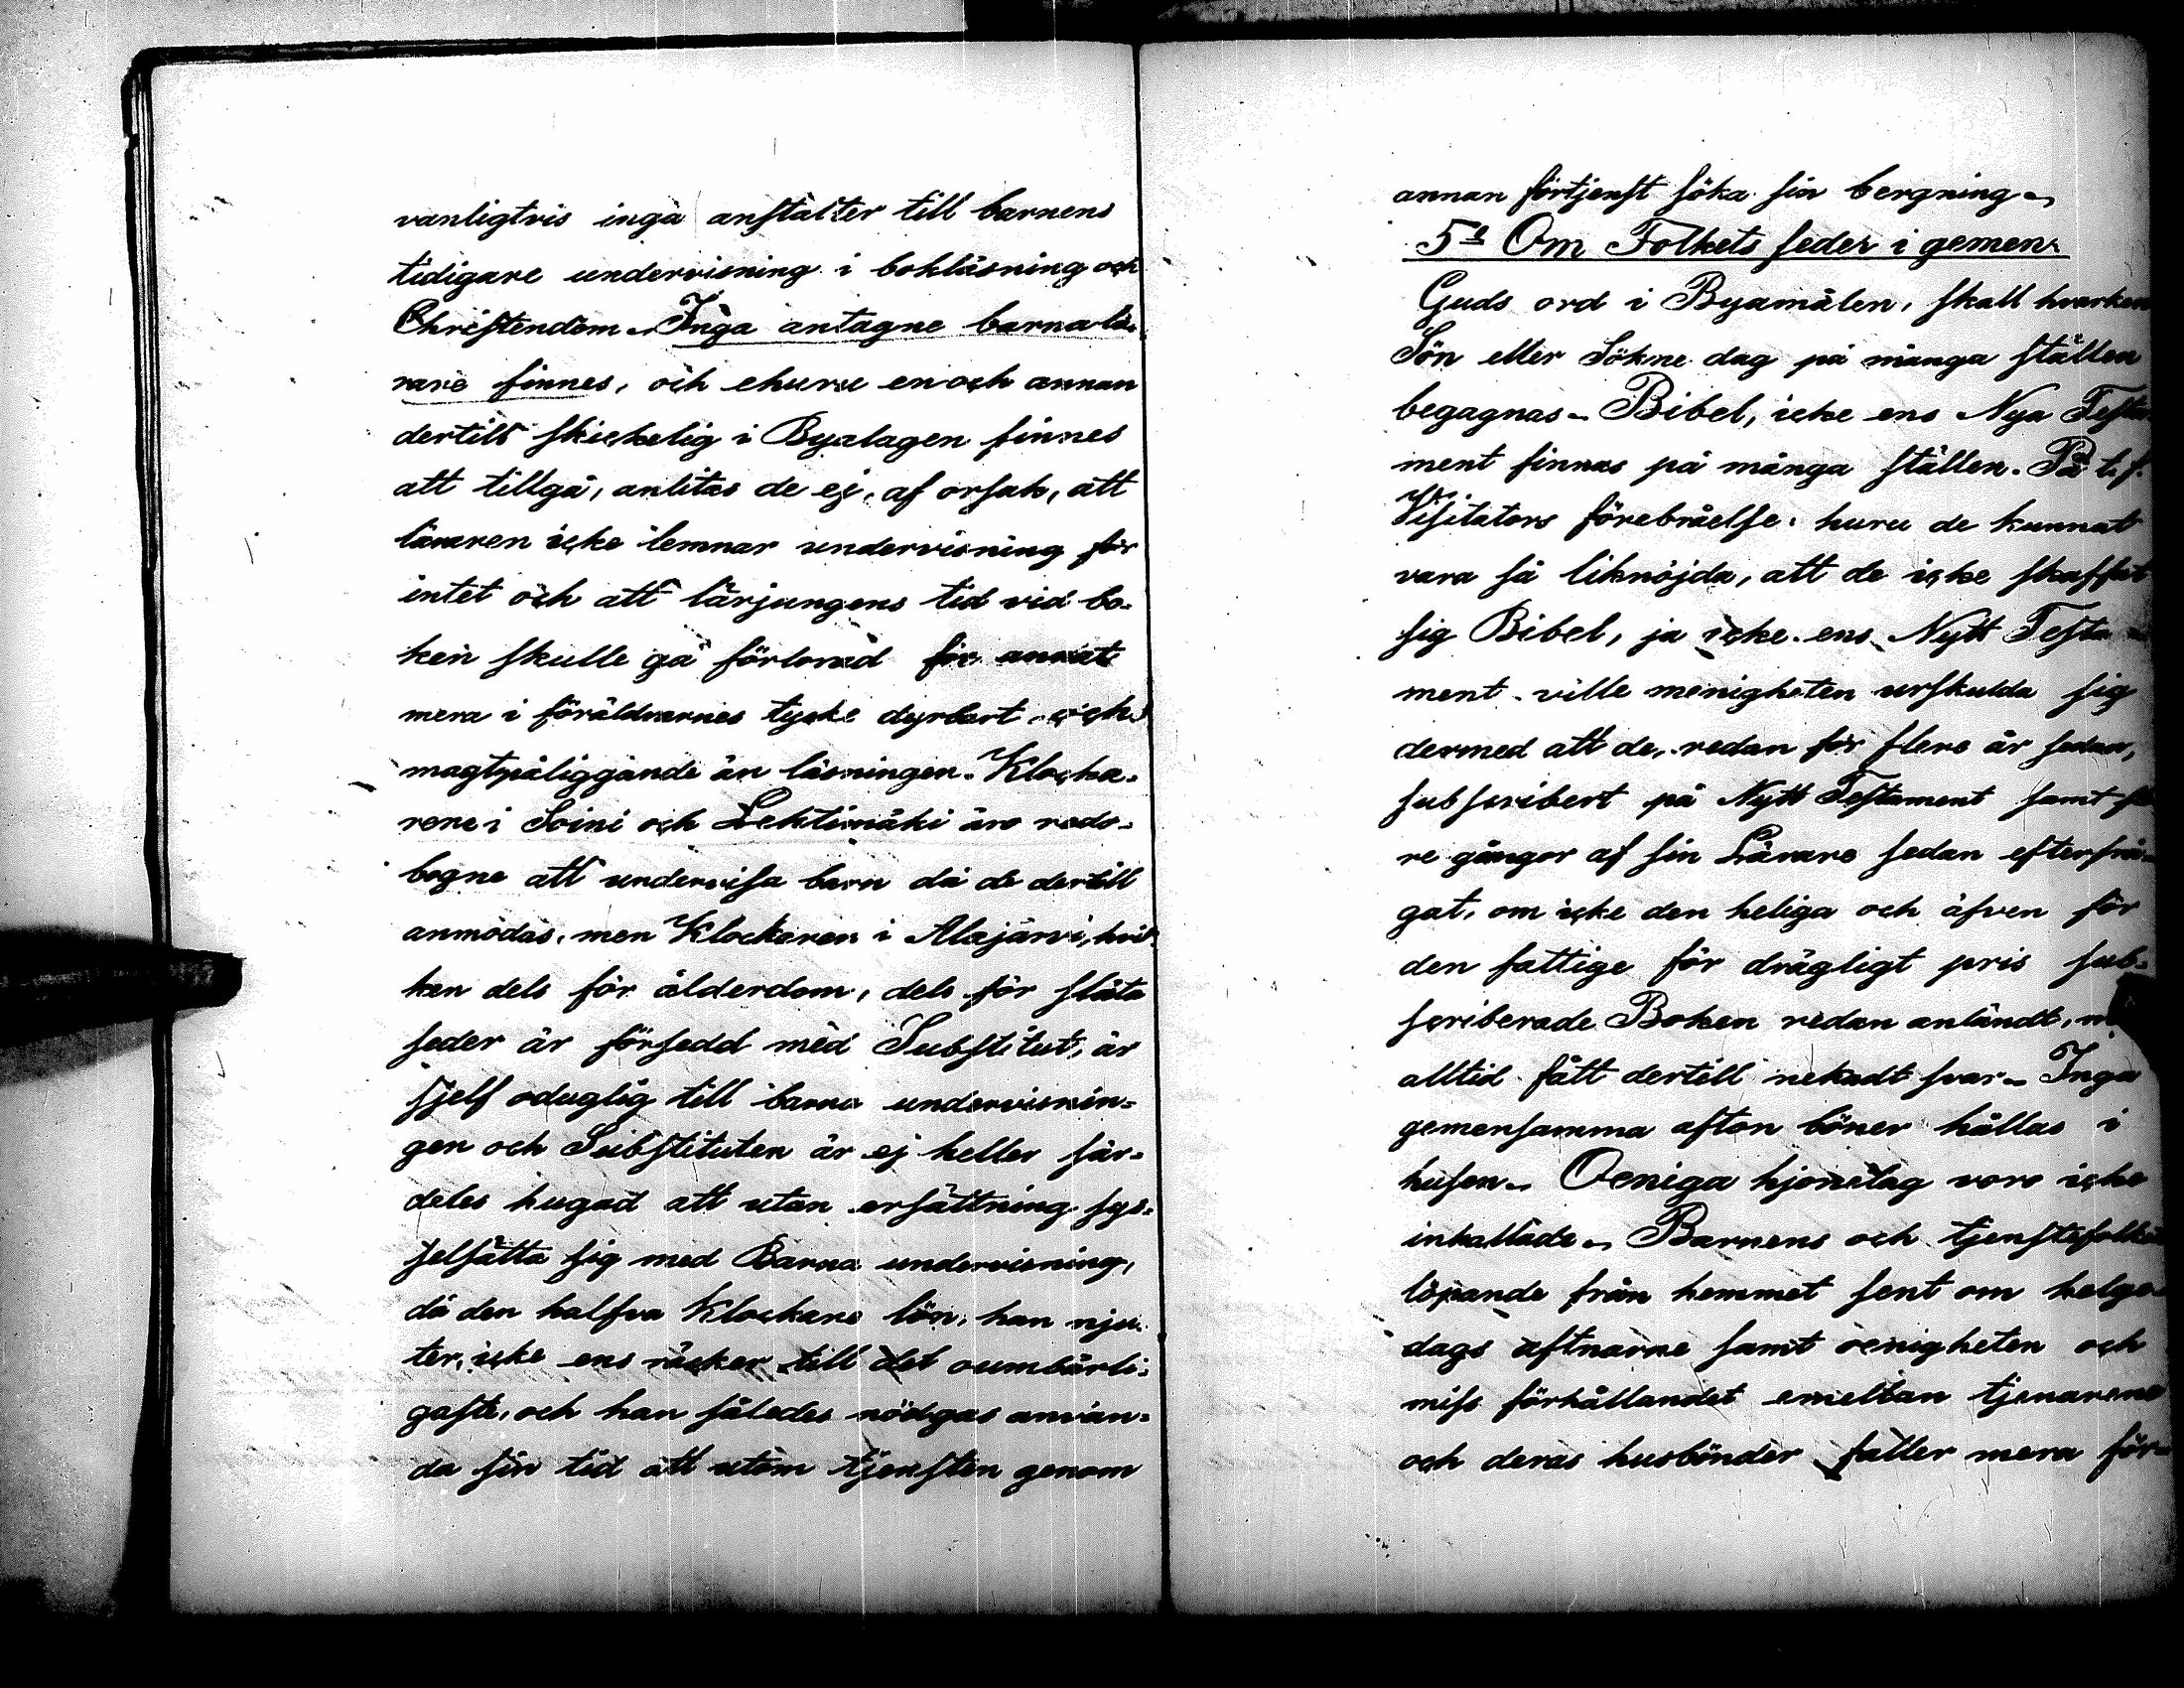 vanligtvis inga anstalter till barnens
tidigare undervisning i bokläsning och
Christendom. Inga antagne barnalä-
rare finnes, och ehuru en och annan
dertill skickelig i Byalagen finnes
att tillgå, anlitas de ej, af orsak, att
läraren icke lemnar undervisning för
intet och att lärjungens tid vid bo-
ken skulle gå förlorad för annat
mera i föräldrarnes tycke dyrbart och
magtpåliggande än läsningen. Klocka-
rene i Soini och Lehtimäki äro redo-
bogne att undervisa barn då de dertill
anmodas, men Klockaren i Alajärvi, hvil-
ken dels för ålderdom, dels för släta
seder är försedd med Substitut, är
sjelf oduglig till barna undervisnin-
gen och Substituten är ej heller sär-
deles hugad att utan ersättning sys-
selsätta sig med Barna undervisning,
då den halfva Klockare lön, han nju-
ter, icke ens räcker till det oumbärli-
gaste, och han således nödgas använ-
da sin tid att utom tjensten genom
annan förtjenst söka sin bergning.
5§ Om Folkets seder i gemen.
Guds ord i Byamålen, skall hvarken
Sön eller Sökne dag på många ställen
begagnas. Bibel, icke ens Nya Testa-
ment finnas på många ställen. På t. f.
Visitators förebråelse, huru de kunnat
vara så liknöjda, att de icke skaffat
sig Bibel, ja icke ens Nytt Testa-
ment ville menigheten urskulda sig
dermed att de, redan för flere år sedan,
subscribert på Nytt Testament samt fle
re gångor af sin Lärare sedan efterfrå-
gat, om icke den heliga och äfven för
den fattige för drägligt pris sub-
scriberade Boken redan anländt,
alltid fått dertill nekadt svar. Inga
gemensamma afton böner hållas i
husen. Oeniga hjonelag voro icke
inkallade. Barnens och tjenstefolkets
löpande från hemmet sent om helge-
dags aftnarne samt oenigheten och
miss förhållandet emellan tjenarene
och deras husbönder faller mera för-